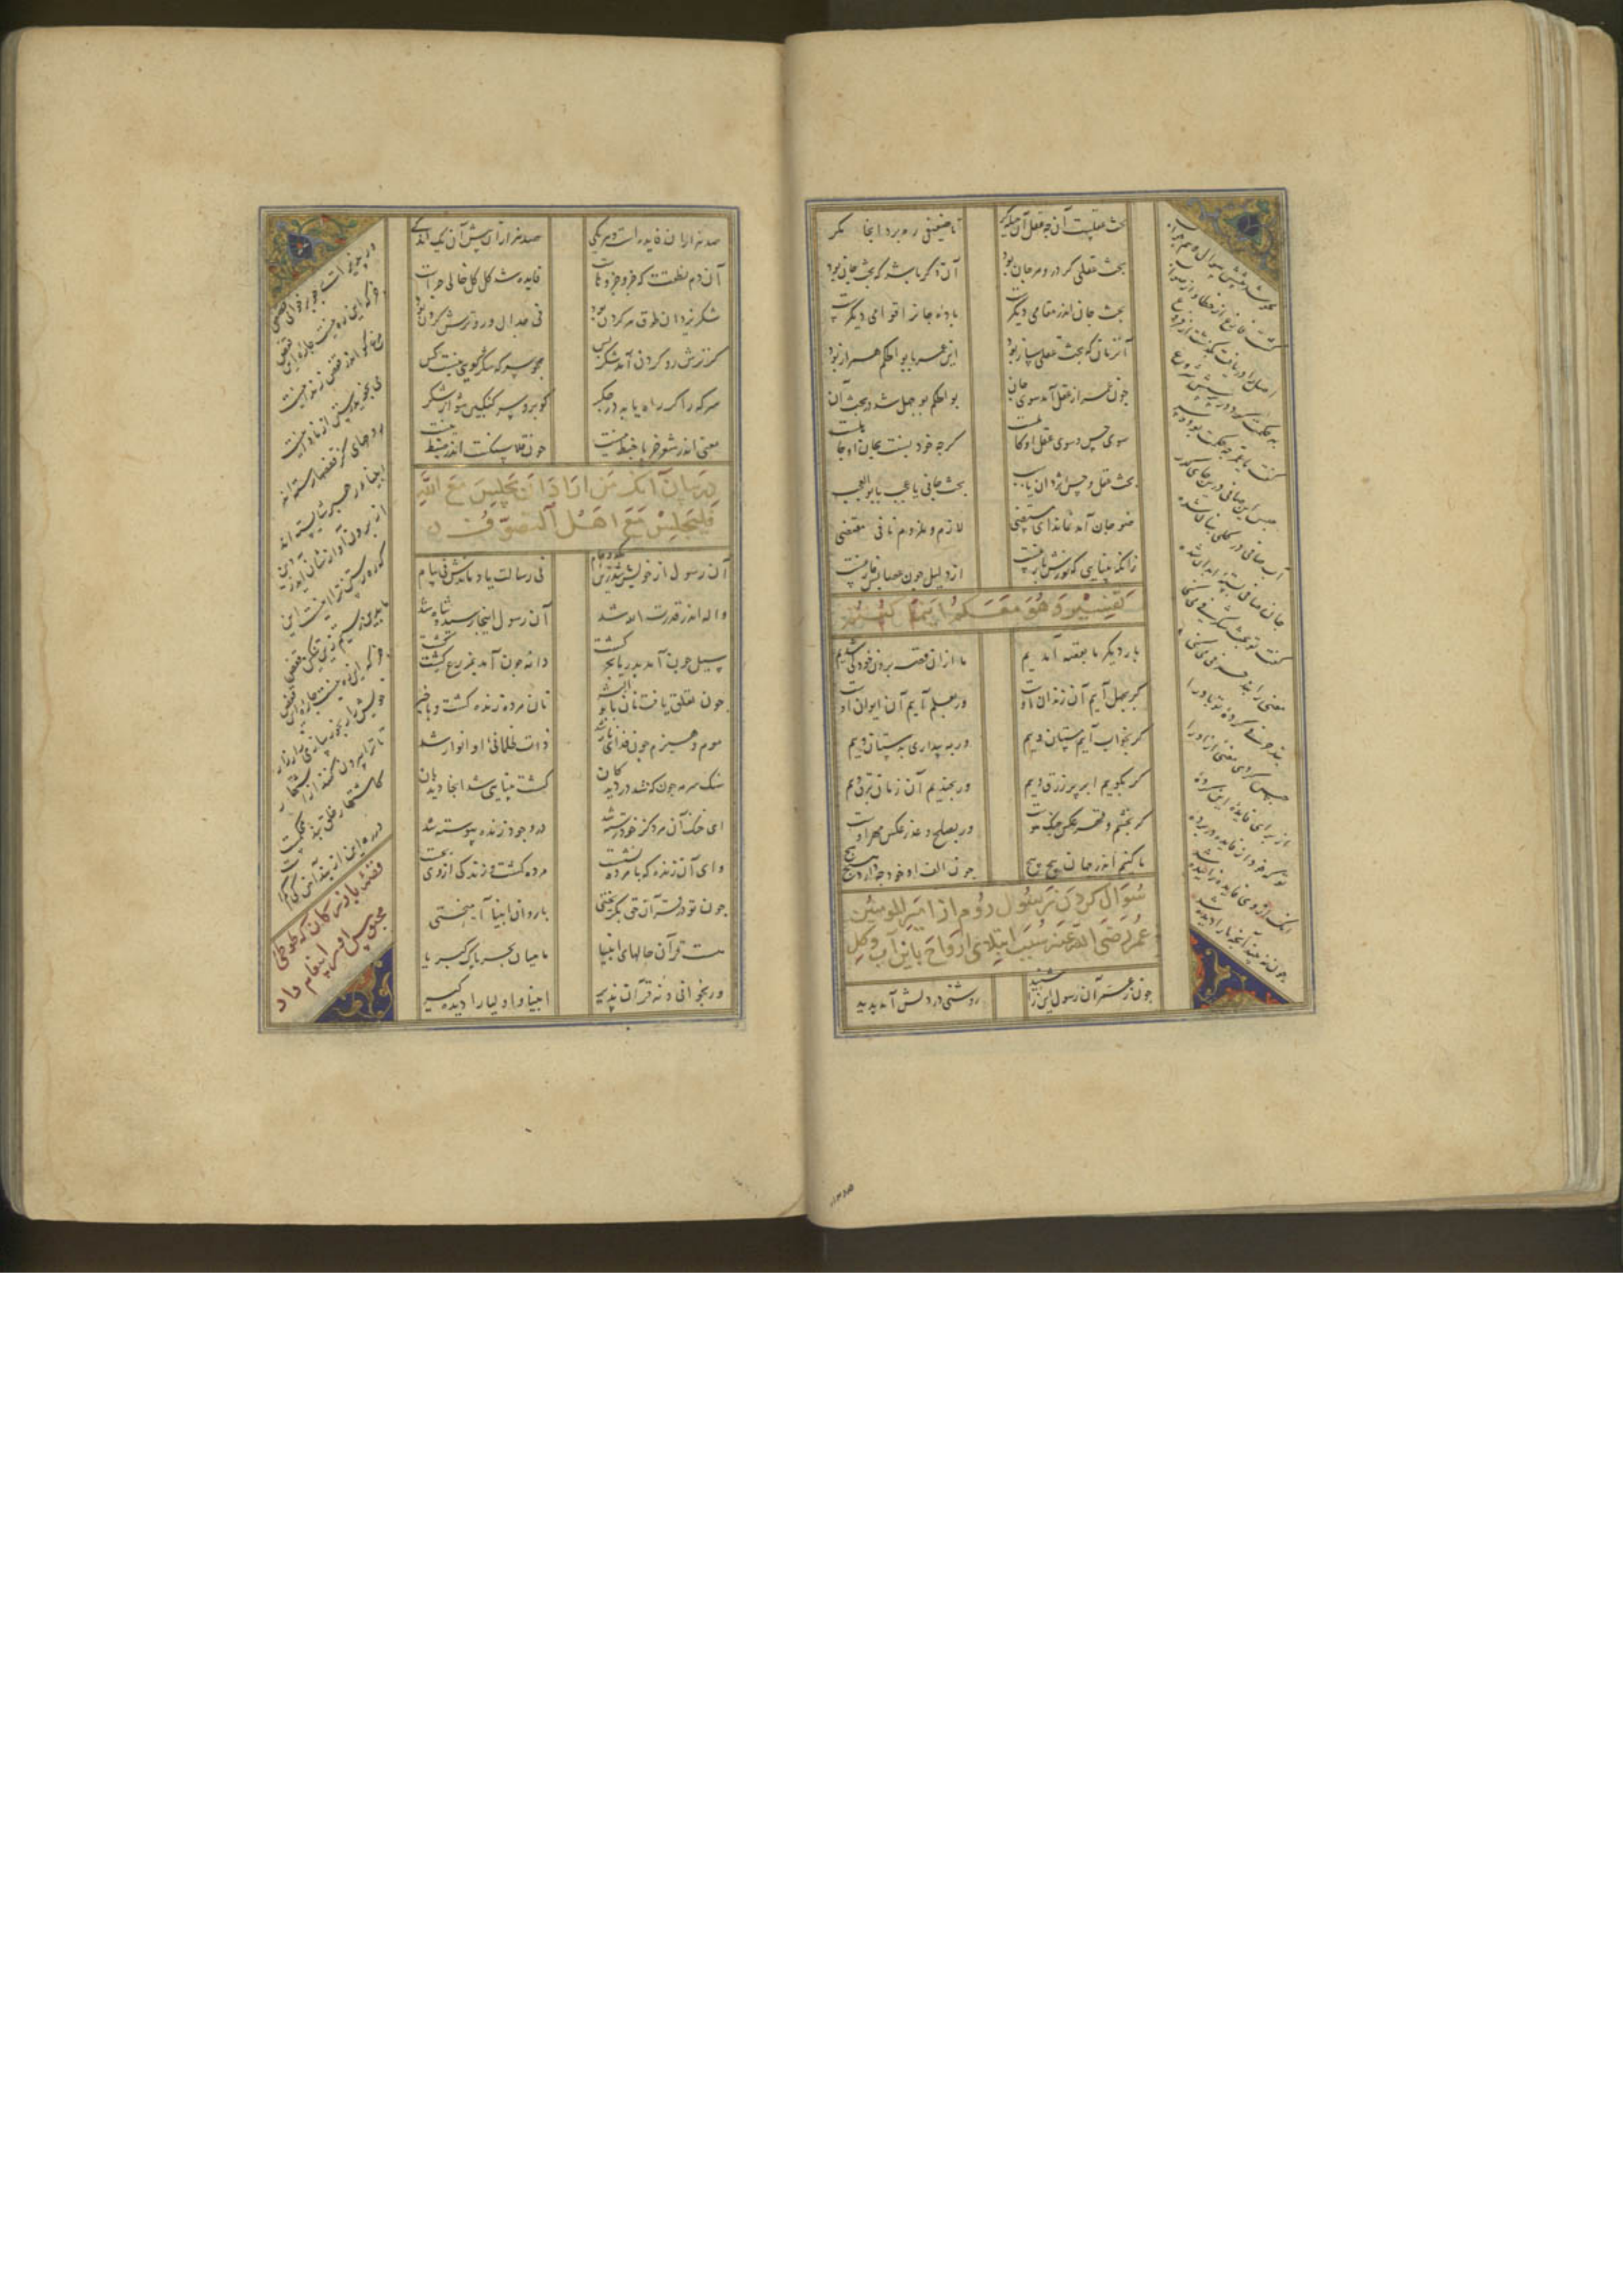 بحث عقلیست آن چه عقل آن حیله‌گر
تا ضعیفی ره برد آنجا مگر
بحث عقلی گر در و مرجان بود
آن دگر باشد که بحث جانی بود
بحث جان اندر مقامی دیگرست
باده جانرا قوامی دیگرست
آن زمان که بحث عقلی ساز بود
این عمر با بوالحکم همراز بود
چون عمر از عقل آمد سوی جان
بوالحکم بوجهل شد در بحث آن
سوی حس و سوی عقل او کاملست
گرچه خود نسبت بجان او جاهلست
بحث عقل و حس اثر دان یا سبب
بحث جانی یا عجب یا بوالعجب
ضوء جان آمد نماند ای مستضی
لازم و ملزوم نافی مقتضی
زانکه بینایی که نورش بازغست
از دلیل چون عصا بس فارغست
تفسیر و هو معکم اینما کنتم
بار دیگر ما بقصه آمدیم
ما از آن قصه برون خود کی شدیم
گر بجهل آییم آن زندان اوست
ور بعلم آییم آن ایوان اوست
گر بخواب آییم مستان وییم
ور به بیداری بدستان وییم
گر بگرییم ابر پر زرق وییم
ور بخندیم آن زمان برق وییم
گر بخشم و قهر عکس جنگ اوست
ور بصلح و عذر عکس مهر اوست
ما کییم اندر جهان پیچ پیچ
چون الف او خود چه دارد هیچ هیچ
سؤال کردن رسول روم از امیر المومنین
عمر رضی الله عنه سبب ابتلای ارواح باین آب و گل
چون ز عمر آن رسول این را شنید
روشنی در دلش آمد پدید
محو شد پیشش سوال و هم جواب
گشت فارغ از خطا و از صواب
اصل را دریافت بگذشت از فروع
بهر حکمت کرد در پرسش شروع
گفت یا عمر چه حکمت بود و سر
حبس این صافی درین جای کدر
آب صافی در گلی پنهان شده
جان صافی بسته ابدان شده
گفت تو بحثی شگرفی می‌کنی
معنیی را بند حرفی می‌کنی
حبس کردی معنی آزاد را
بند حرفی کرده تو باد را
از برای فایده این کرده
تو که خود از فایده در پرده
آنک از وی فایده زاییده شد
چون نبیند آنچه ما را دیده شد
صد هزاران فایده است و هر یکی
صد هزاران پیش آن یک اندکی
آن دم نطقت که جزو جزوهاست
فایده شد کل کل خالی چراست
شکر یزدان طوق هر گردن بود
نی جدال و رو ترش کردن بود
گر ترش رو کردن آمد شکر و بس
همچو سرکه شکرگویی نیست کس
سرکه را گر راه یابد در جگر
گو برو سرکنگبین شو از شکر
معنی اندر شعر جز با خبط نیست
چون قلاسنگست اندر ضبط نیست
در بیان آنک من اراد ان یجلس مع الله
فلیجلس مع اهل التصوف
آن رسول از خویش بشد زین یکدو جام
نی رسالت یاد ماندش نی پیام
واله اندر قدرت الله شد
آن رسول اینجا رسید و شاه شد
سیل چون آمد بدریا بحر گشت
دانه چون آمد بمزرع کشت گشت
چون تعلق یافت نان با بوالبشر
نان مرده زنده گشت و با خبر
موم و هیزم چون فدای نار شد
ذات ظلمانی او انوار شد
سنگ سرمه چونکه شد در دیدگان
گشت بینایی شد آنجا دیدبان
ای خنک آن مرد کز خود رسته شد
در وجود زنده پیوسته شد
وای آن زنده که با مرده نشست
مرده گشت و زندگی از وی بجست
چون تو در قرآن حق بگریختی
با روان انبیا آمیختی
هست قرآن حالهای انبیا
ماهیان بحر پاک کبریا
ور بخوانی و نه قرآن پذیر
انبیا و اولیا را دیده گیر
ور پذیرایی چو بر خوانی قصص
مرغ جانت تنگ آید در قفص
مرغ کو اندر قفص زندانیست
می نجوید رستن از نادانیست
روحهایی کز قفصها رسته‌اند
انبیاء رهبر شایسته‌اند
از برون آوازشان آید ز دین
که ره رستن ترا اینست این
ما بدین رستیم زین تنگین قفص
جز که این ره نیست چاره این قفص
خویش را رنجور سازی زار زار
تا ترا بیرون کنند از اشتهار
کاشتهار خلق بند محکمست
در ره این از بند آهن کی کمست
قصه بازرگان که طوطی
محبوس او پیغام داد